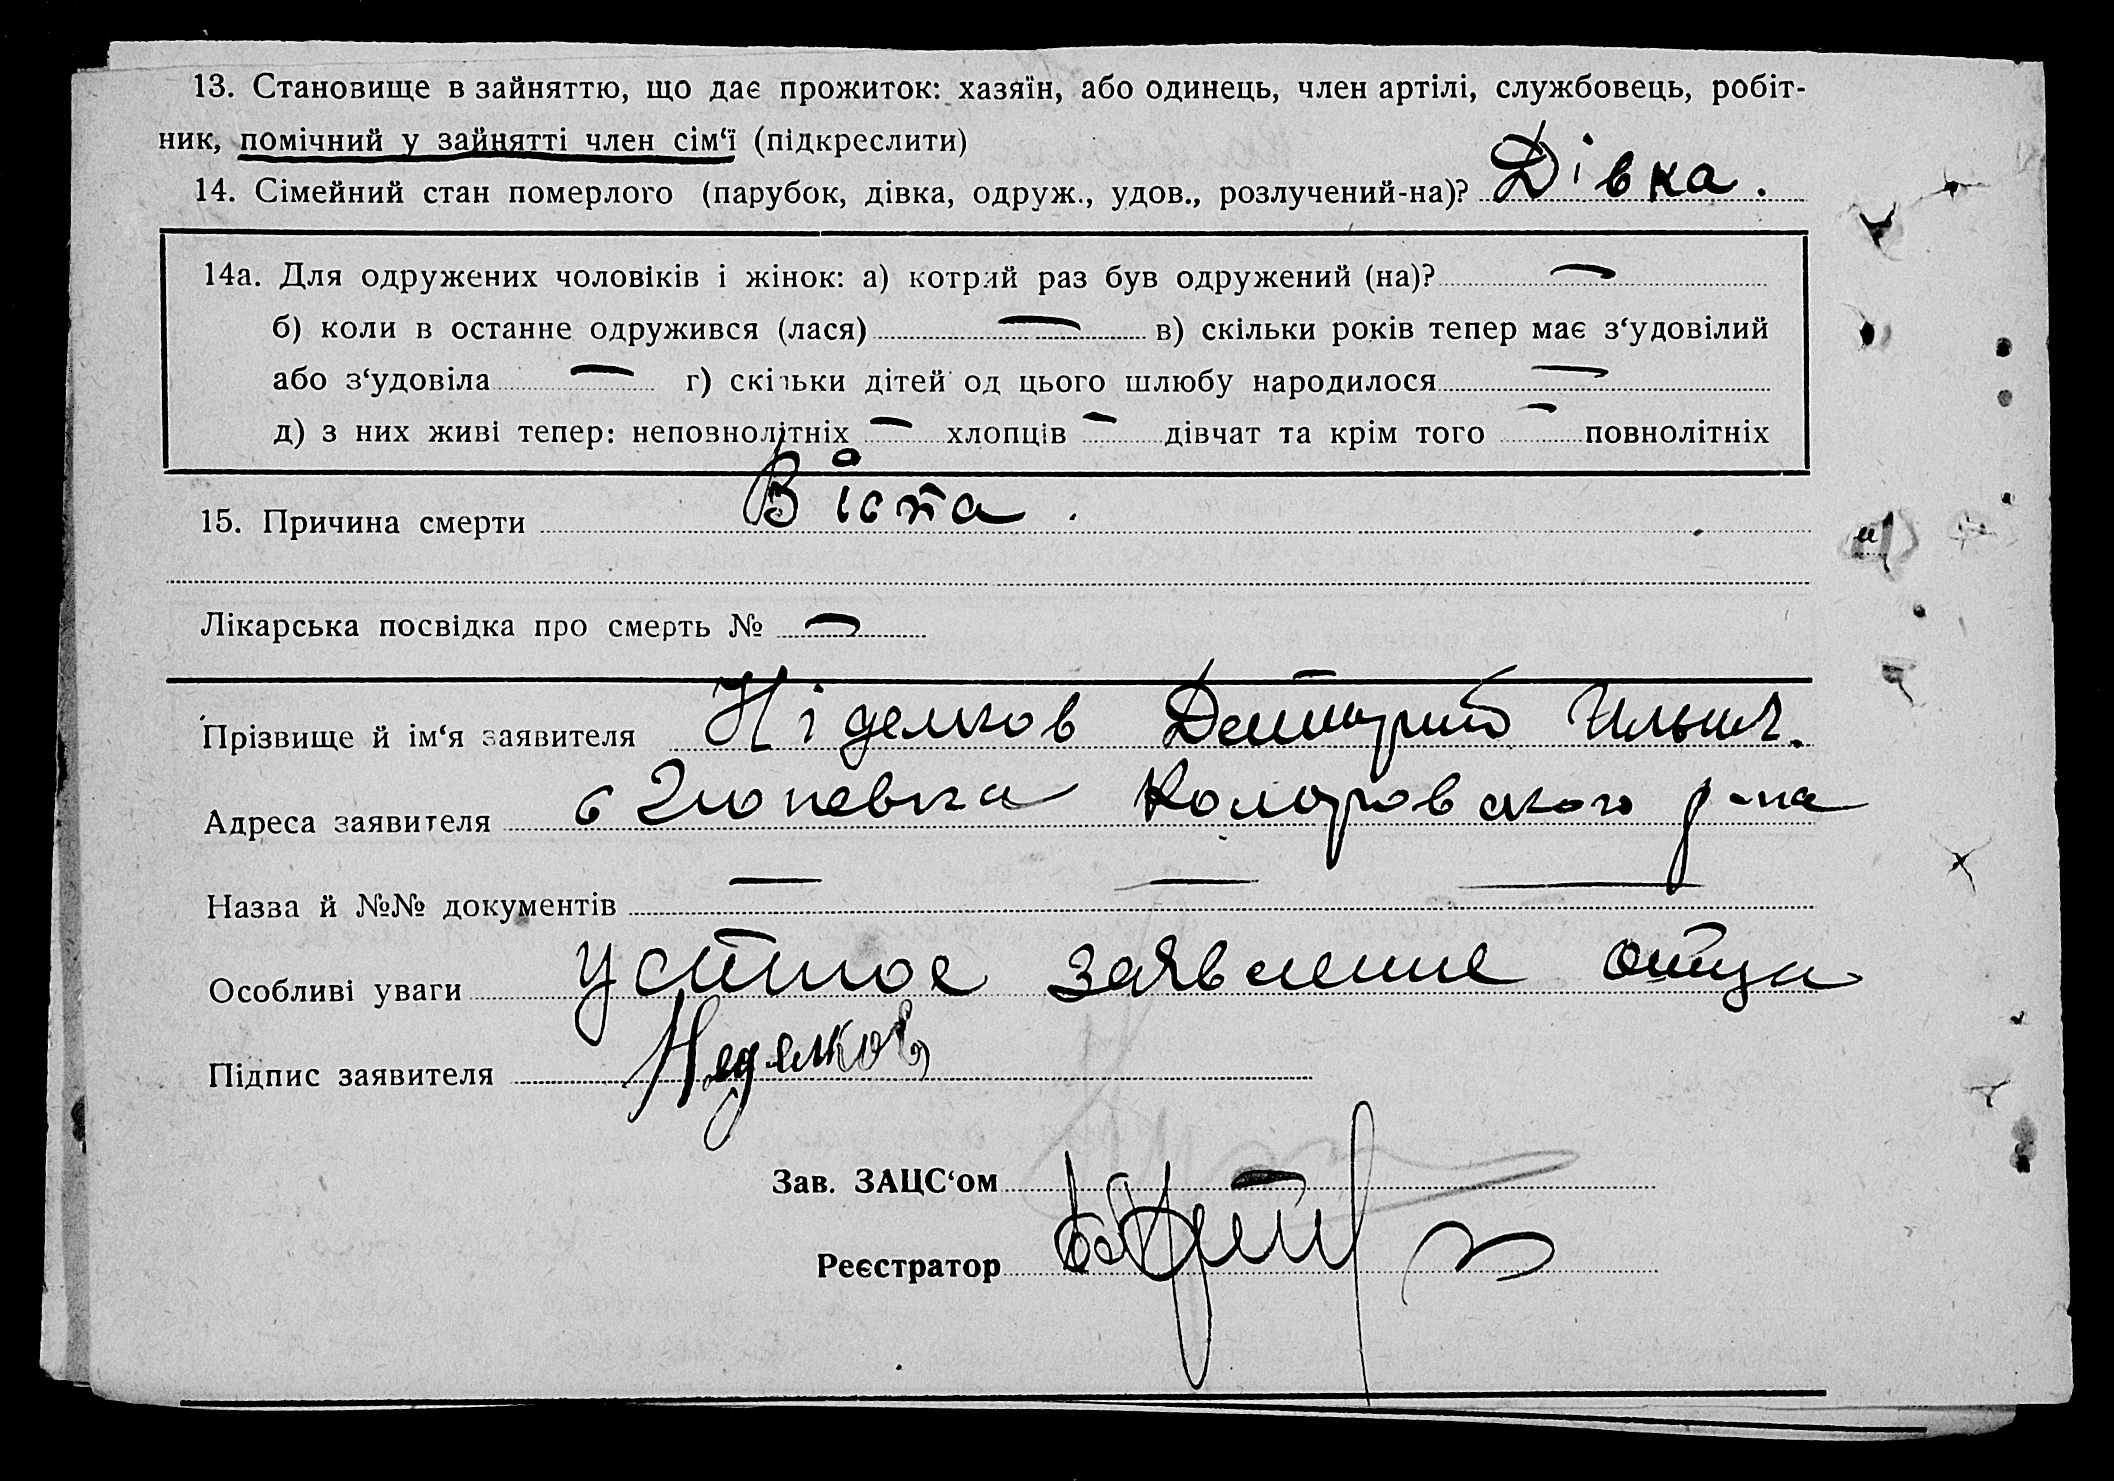 13. Становище в зайняттю, що дає прожиток: хазяїн, або одинець, член артілі, службовець, робіт-
ник, помічний у зайнятті член сім‘ї (підкреслити)
14. Сімейний стан померлого (парубок, дівка, одруж., удов., розлучений-на)? Дівка.
14а. Для одружених чоловіків і жінок: а) котрий раз був одружений (на)? —
б) коли в останне одружився (лася) — в) скільки років тепер має з‘удовілий
або з‘удовіла — г) скільки дітей од цього шлюбу народилося —
д) з них живі тепер: неповнолітніх — хлопців — дівчат та крім того — повнолітніх
15. Причина смерти Віспа.
Лікарська посвідка про смерть № —
Прізвище й ім‘я заявителя Ніделков Дмитрий Ильич.
Адреса заявителя с Коларовского р-на
Назва й №№ документів — — —
Особливі уваги устное заявление отца
Підпис заявителя Неделков
Зав. ЗАЦС‘ом
Реєстратор